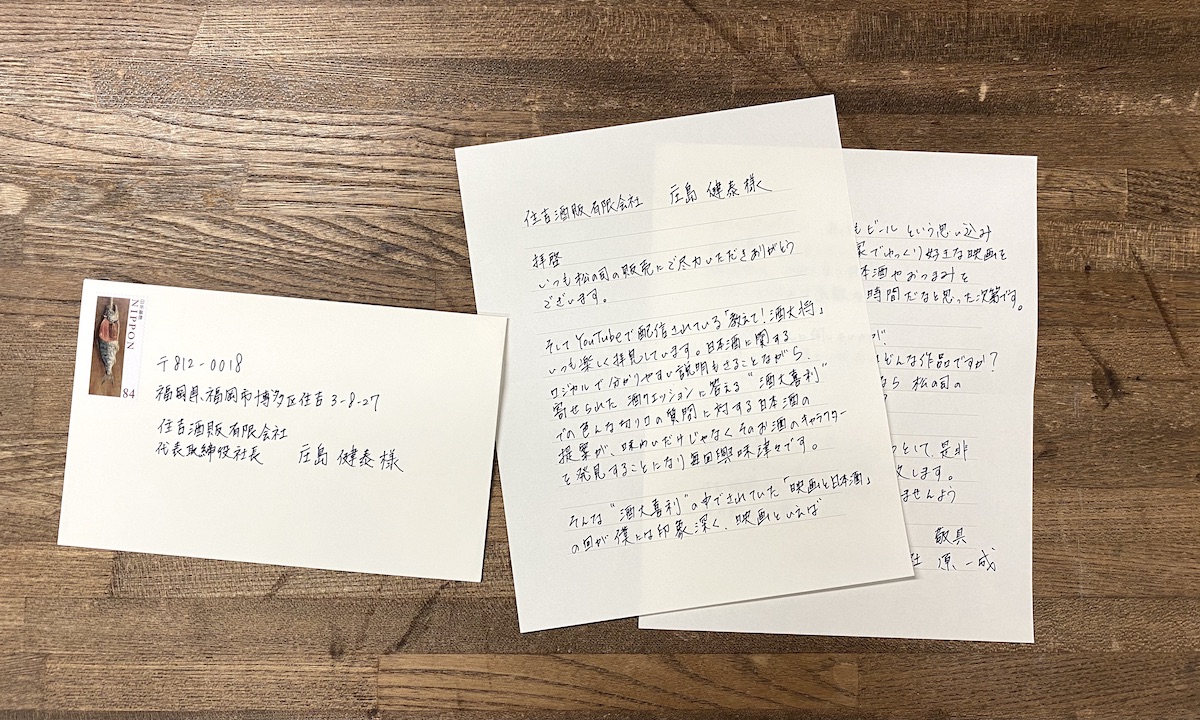 日本郵便
NIPPON
84
〒812-0018
福岡県福岡市博多区住吉3-8-27
住吉酒販有限会社
代表取締役社長 庄島 健泰 様
住吉酒販有限会社 庄島 健泰 様
拝啓
いつも松の司の販売にご尽力いただきありがとう
ございます。
そしてYouTubeで配信されている「教えて!酒大将」
いつも楽しく拝見しています。日本酒に関する
ロジカルで分かりやすい説明もさることながら、
寄せられた酒クエッションに答える"酒大喜利"
での色んな切り口の質問に対する日本酒の
提案が、味わいだけじゃなくそのお酒のキャラクター
を発見することになり毎回興味津々です。
そんな"酒大喜利"の中でされていた「映画と日本酒」
の回が僕には印象深く、映画といえば
もビールという思い込み
家でゆっくり好きな映画を
本酒やおつまみを
時間だなと思った次第です。
が!
どんな作品ですか?
なら 松の司の
?
として、是非
致します。
ませんよう
敬具
原 一成